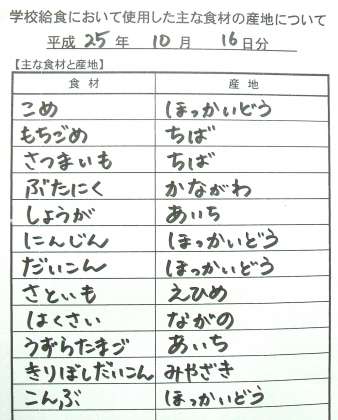 学校給食において使用した主な食材の産地について
平成 25 年 10 月 16 日分
【主な食材と産地】
食材 産地
こめ ほっかいどう
もちごめ ちば
さつまいも ちば
ぶたにく かながわ
しょうが あいち
にんじん ほっかいどう
だいこん ほっかいどう
さといも えひめ
はくさい ながの
うずらたまご あいち
きりぼしだいこん みやざき
こんぶ ほっかいどう